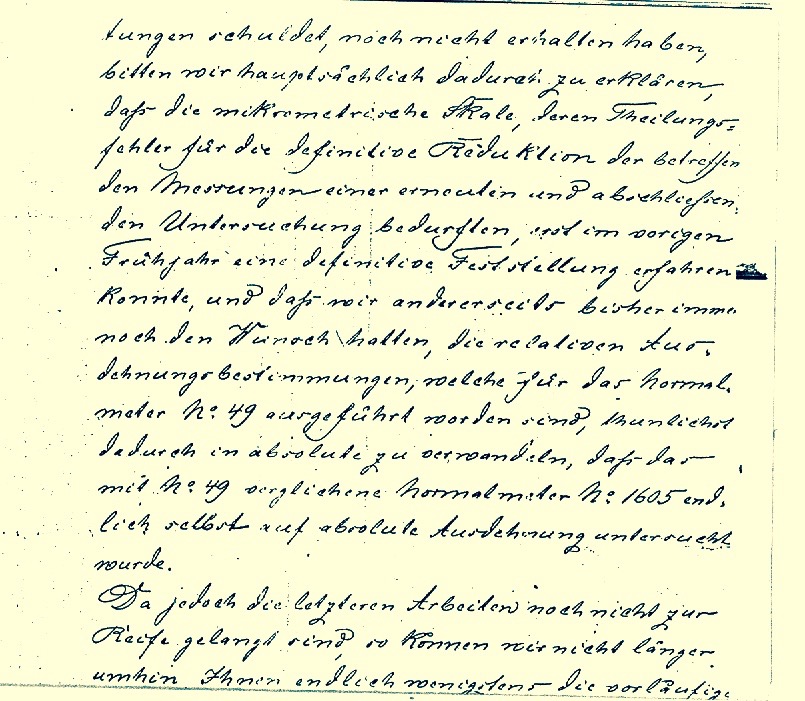 tungen schuldet, noch nicht erhalten haben,
bitten wir hauptsächlich dadurch zu erklären,
daß die mikrometrische Skale, deren Theilungs=
fehler für die definitive Reduktion der betreffen
den Messungen einer erneuten und abschließen.
den Untersuchung bedurften, erst im vorigen
Frühjahr eine definitive Feststellung erfahren
konnte, und daß wir andererseits bisher imme
noch den Wunsch hatten, die relativen Aus.
dehnungsbestimmungen, welche für das Normal.
meter No. 49 ausgeführt worden sind, thunlichst
dadurch in absolute zu verwandeln, daß das
mit No. 49 verglichene Normalmeter No. 1605 end.
lich selbst auf absolute Ausdehnung untersucht
wurde.
Da jedoch die letzteren Arbeiten noch nicht zur
Reife gelangt sind, so können wir nicht länger
umhin Ihnen endlich wenigstens die vorläufige